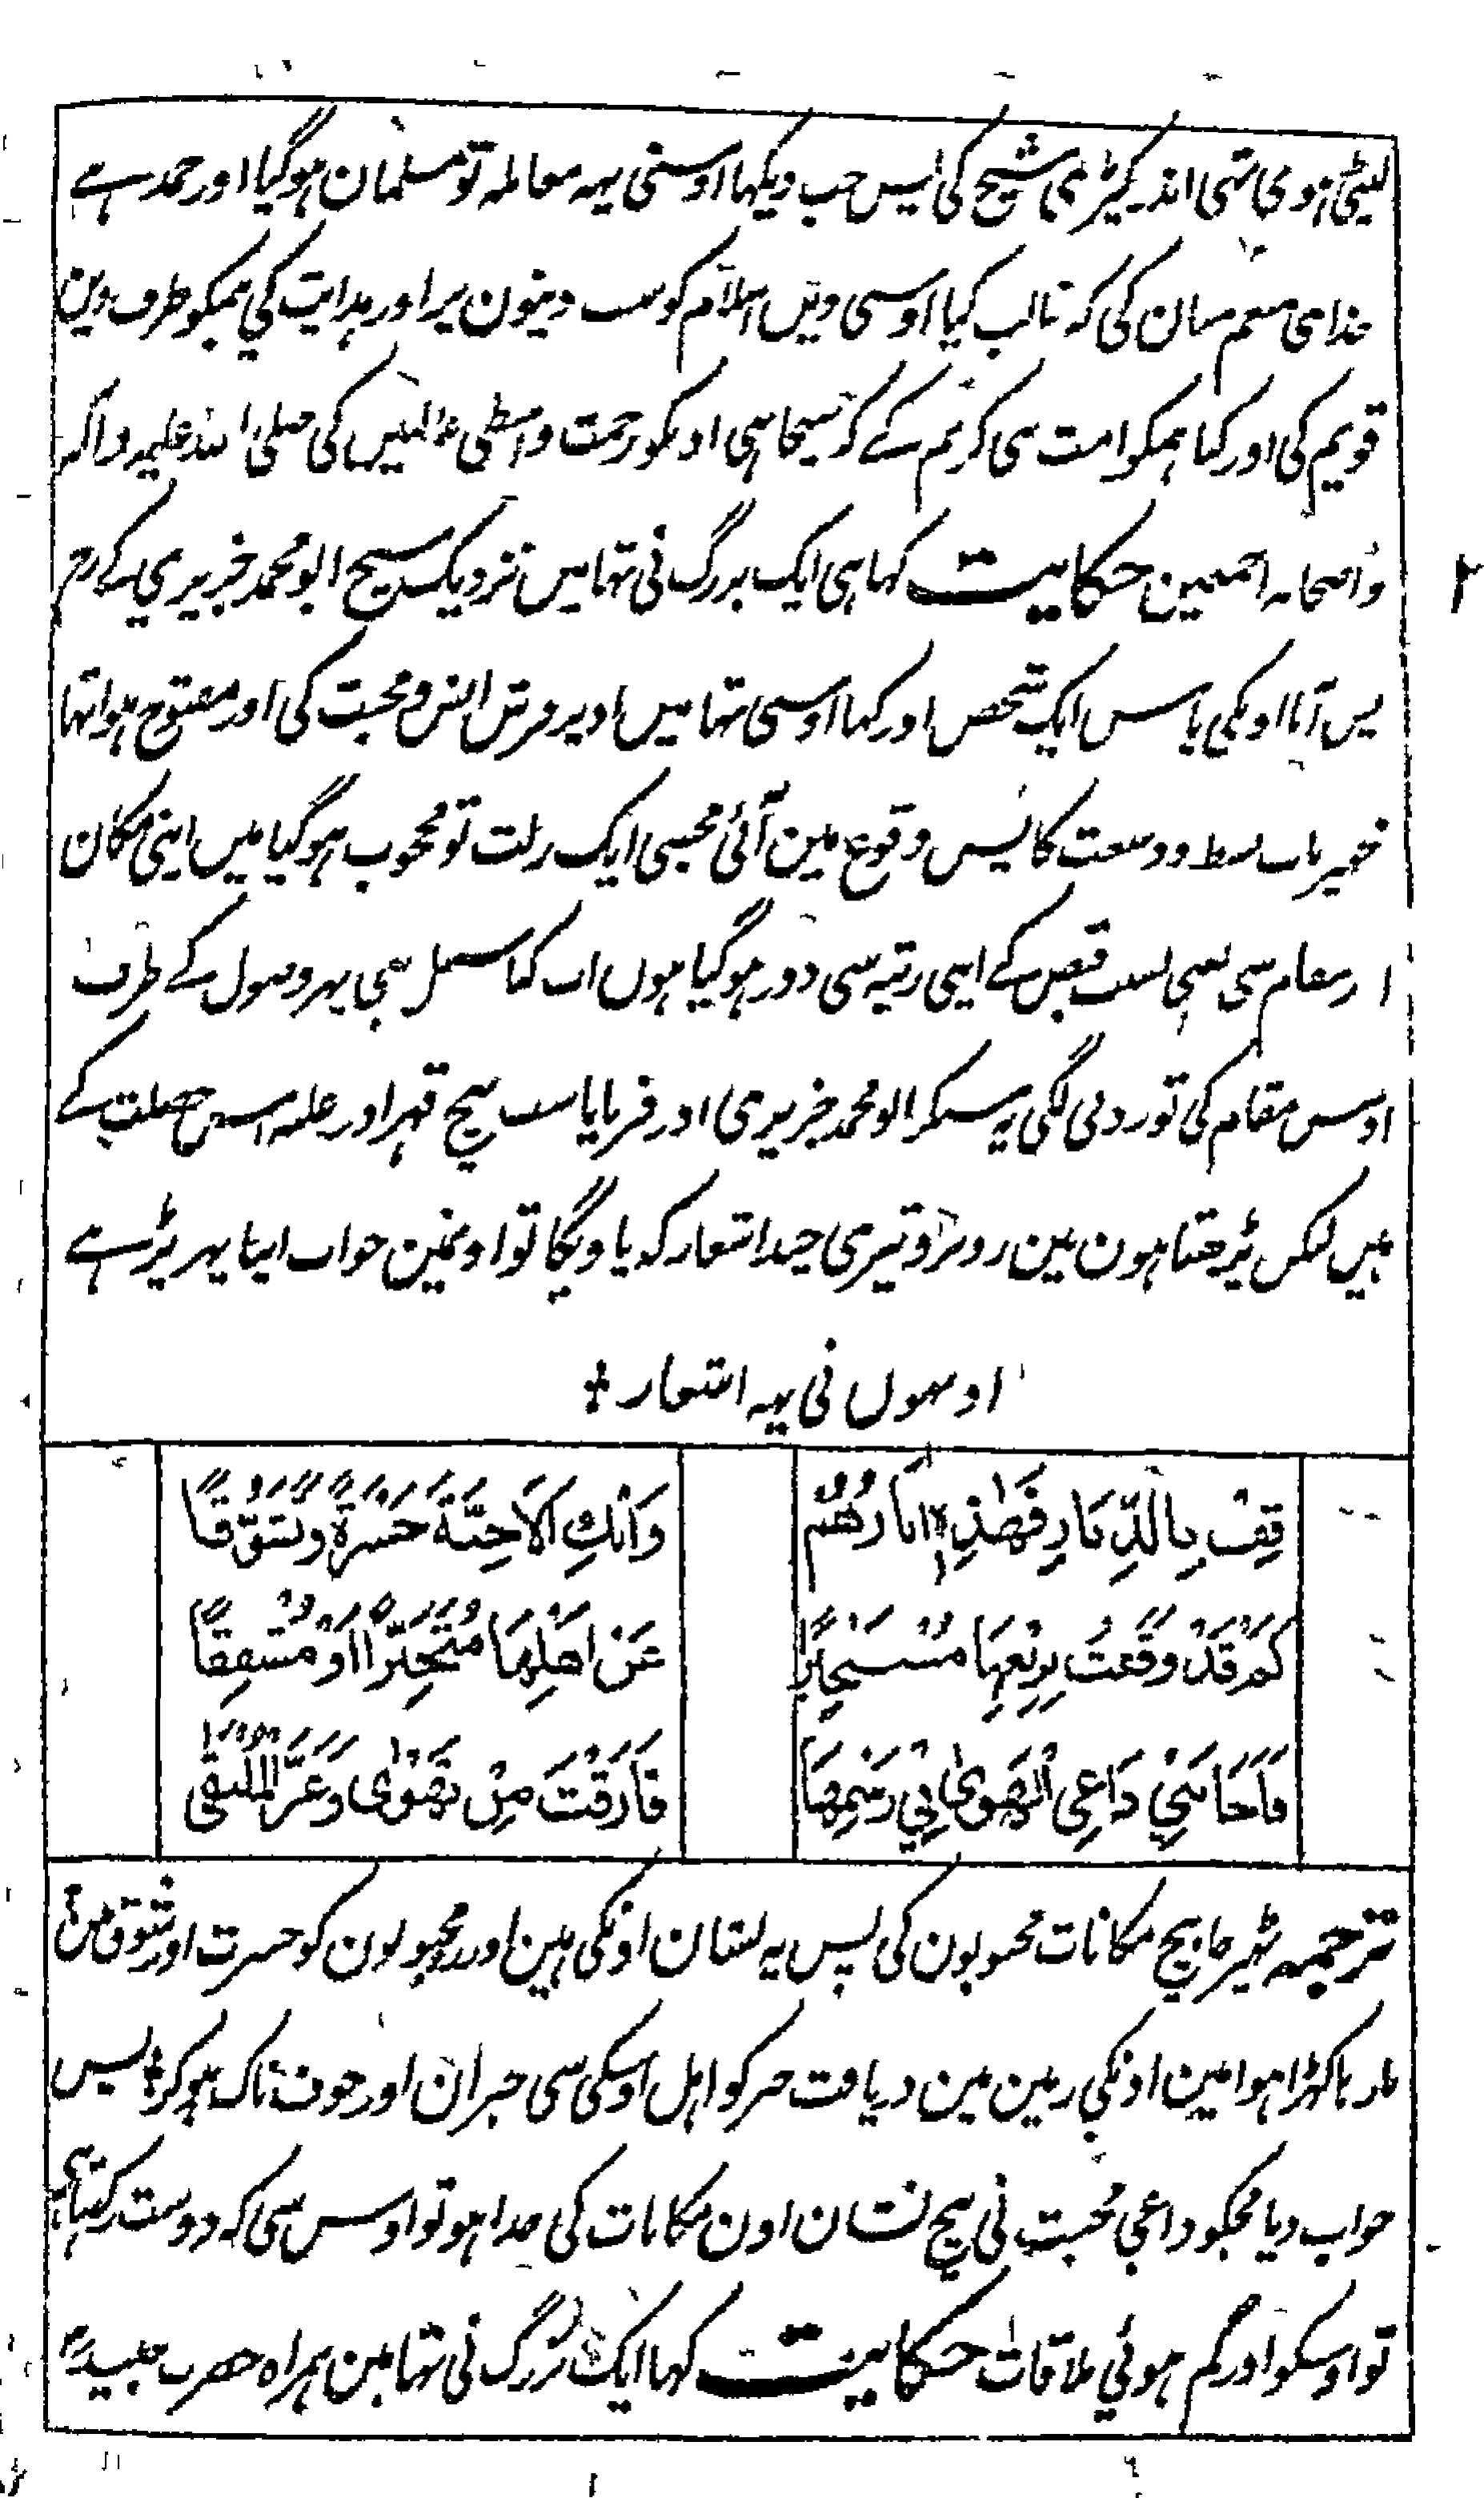 لپٹی ہوی تہی اندر کپڑی شیخ کی پس جب دیکہا اوسنی یہہ معاملہ تو مسلمان ہوگیا اور حمد ہے
خدای منعم منان کی کہ غالب کیا اوسی دین اسلام کو سب دینون پر اور ہدایت کی ہمکو طرف دین
قویم کی اور کیا ہمکو امت نبی کریم کے کہ بہیجا ہی اونکو رحمت واسطی عالمین کی صلی اللہ علیہ وآلہ
واصحابہ اجمعین حکایت کہا ہی ایک بزرگ نی تہا میں نزدیک شیخ ابو محمد جریری کے
پس آیا اونکی پاس ایک شخص اور کہا اوسی تہا میں اوپر فرش انس و محبت کی اور مفتوح ہوا تہا
مجہپر باب بسط و وسعت کا پس وقوع مین آئی مجہسی ایک زلت تو محجوب ہوگیا میں اپنی مکان
اور مقام سی یعنی بسبب قبض کے اپنی رتبہ سی دور ہوگیا ہوں اب کیا سبیل ہی پہر وصول کے طرف
اوس مقام کی تو رونی لگی یہ سنکر ابو محمد جریری اور فرمایا سب بیچ قہر اور غلبہ اس خصلت کے
ہیں لیکن پڑھتا ہون مین روبرو تیری چند اشعار کہ پاویگا تو اونمین جواب اپنا پہر پڑہے
اونہوں نی یہہ اشعار +
قِفْ بِالدِّيَارِ فَهٰذِهٖ اٰثَارُهُمْ وَابْكِ الْاَحِبَّةَ حَسْرَةً وَتَشَوُّقًا
كَمْ قَدْ وَقَفْتُ بِرَبْعِهَا مُسْتَخْبِرًا عَنْ اَهْلِهَا مُتَحَيِّرًا اَوْ مُشْفِقًا
فَاَجَابَنِيْ دَاعِي الْهَوٰى فِيْ رَسْمِهَا فَارَقْتَ مَنْ تَهْوٰى وَعَزَّ الْمُلْتَقٰى
ترجمہ ٹہیر جا بیچ مکانات محبوبون کی پس یہ نشان اونکی ہین اور رو محبوبون کو حسرت اور شوق مین
بارہا کہڑا ہوا مین اونکی زمین مین دریافت خبر کو اہل اوسکی سی حیران اور خوف ناک ہوکر پس
جواب دیا مجکو داعی محبت نی بیچ نشان اون مکانات کی جدا ہو تو اوس سی کہ دوست رکہتا ہی
تو اوسکو اور گم ہوئی ملاقات حکایت کہا ایک بزرگ نی تہا مین ہمراہ حضرت جنید